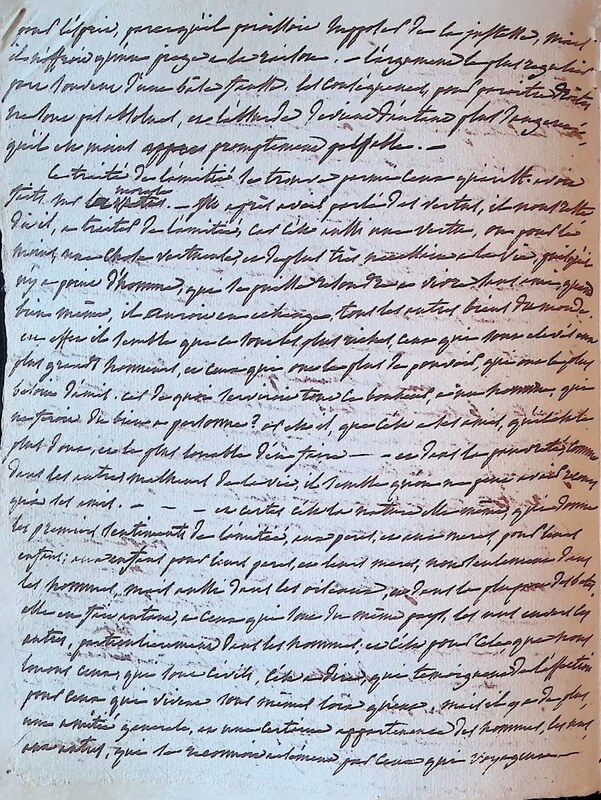 pour l'esprit, parcequ'il paroissoit supposer de la justesse, mais
il n'offroit qu'une prise a la raison. - l'argument le plus regulier
part souvent d'une base fausse. les conséquences, pour paroitre droites,
ne sont pas absolues, et l'absurde devient d'autant plus
qu'il est moins promptement palpable. -
le traité de l'amitié se trouve parmi ceux qu'aristote avoit
faits, sur la morale. - apres avoir parlé des vertus, il nous reste
dit il, a traiter de l'amitié, car c'est aussi une vertu, ou pour le
moins, une chose vertueuse, et de plus très necessaire a la vie, puisqu'il
n'y a point d'homme, que se voulut resoudre a vivre sans amis quand
bien même, il auroit en echange, tous les autres biens du monde.
en effet il semble que ce sont les plus riches, ceux qui sont elevés aux
plus grands honneurs, et ceux qui ont le plus de pouvoir, qui ont le plus
besoin d'amis. car de quoi serviroit tout ce bonheur, a un homme, qui
ne feroit de bien a personne? or est il, que c'est a ses amis, qu'il est le
plus doux, et le plus louable d'en faire - - et dans la pauvreté, comme
dans les autres malheurs de la vie, il semble qu'on ne peut avoir recours
qu'a ses amis. - - - et certes c'est la nature elle même, qui donne
les premiers sentiments de l'amitié, aux peres, et aux meres, pour leurs
enfans; aux enfans pour leurs peres, et leurs meres, non seulement dans
les hommes, mais aussi dans les oiseaux, et dans la plus part des bêtes.
elle en fait autant, a ceux qui sont du même pays, les uns envers les
autres, particulierement dans les hommes, et c'est pour cela que nous
louons ceux, qui sont civils, c'est a dire, qui temoignent de l'affection
pour ceux qui vivent sous mêmes loix qu'eux. mais il y a de plus,
une amitié generale, et une certaine appartenance des hommes, les uns
aux autres, que se reconnoit aisément par ceux qui voyagent -